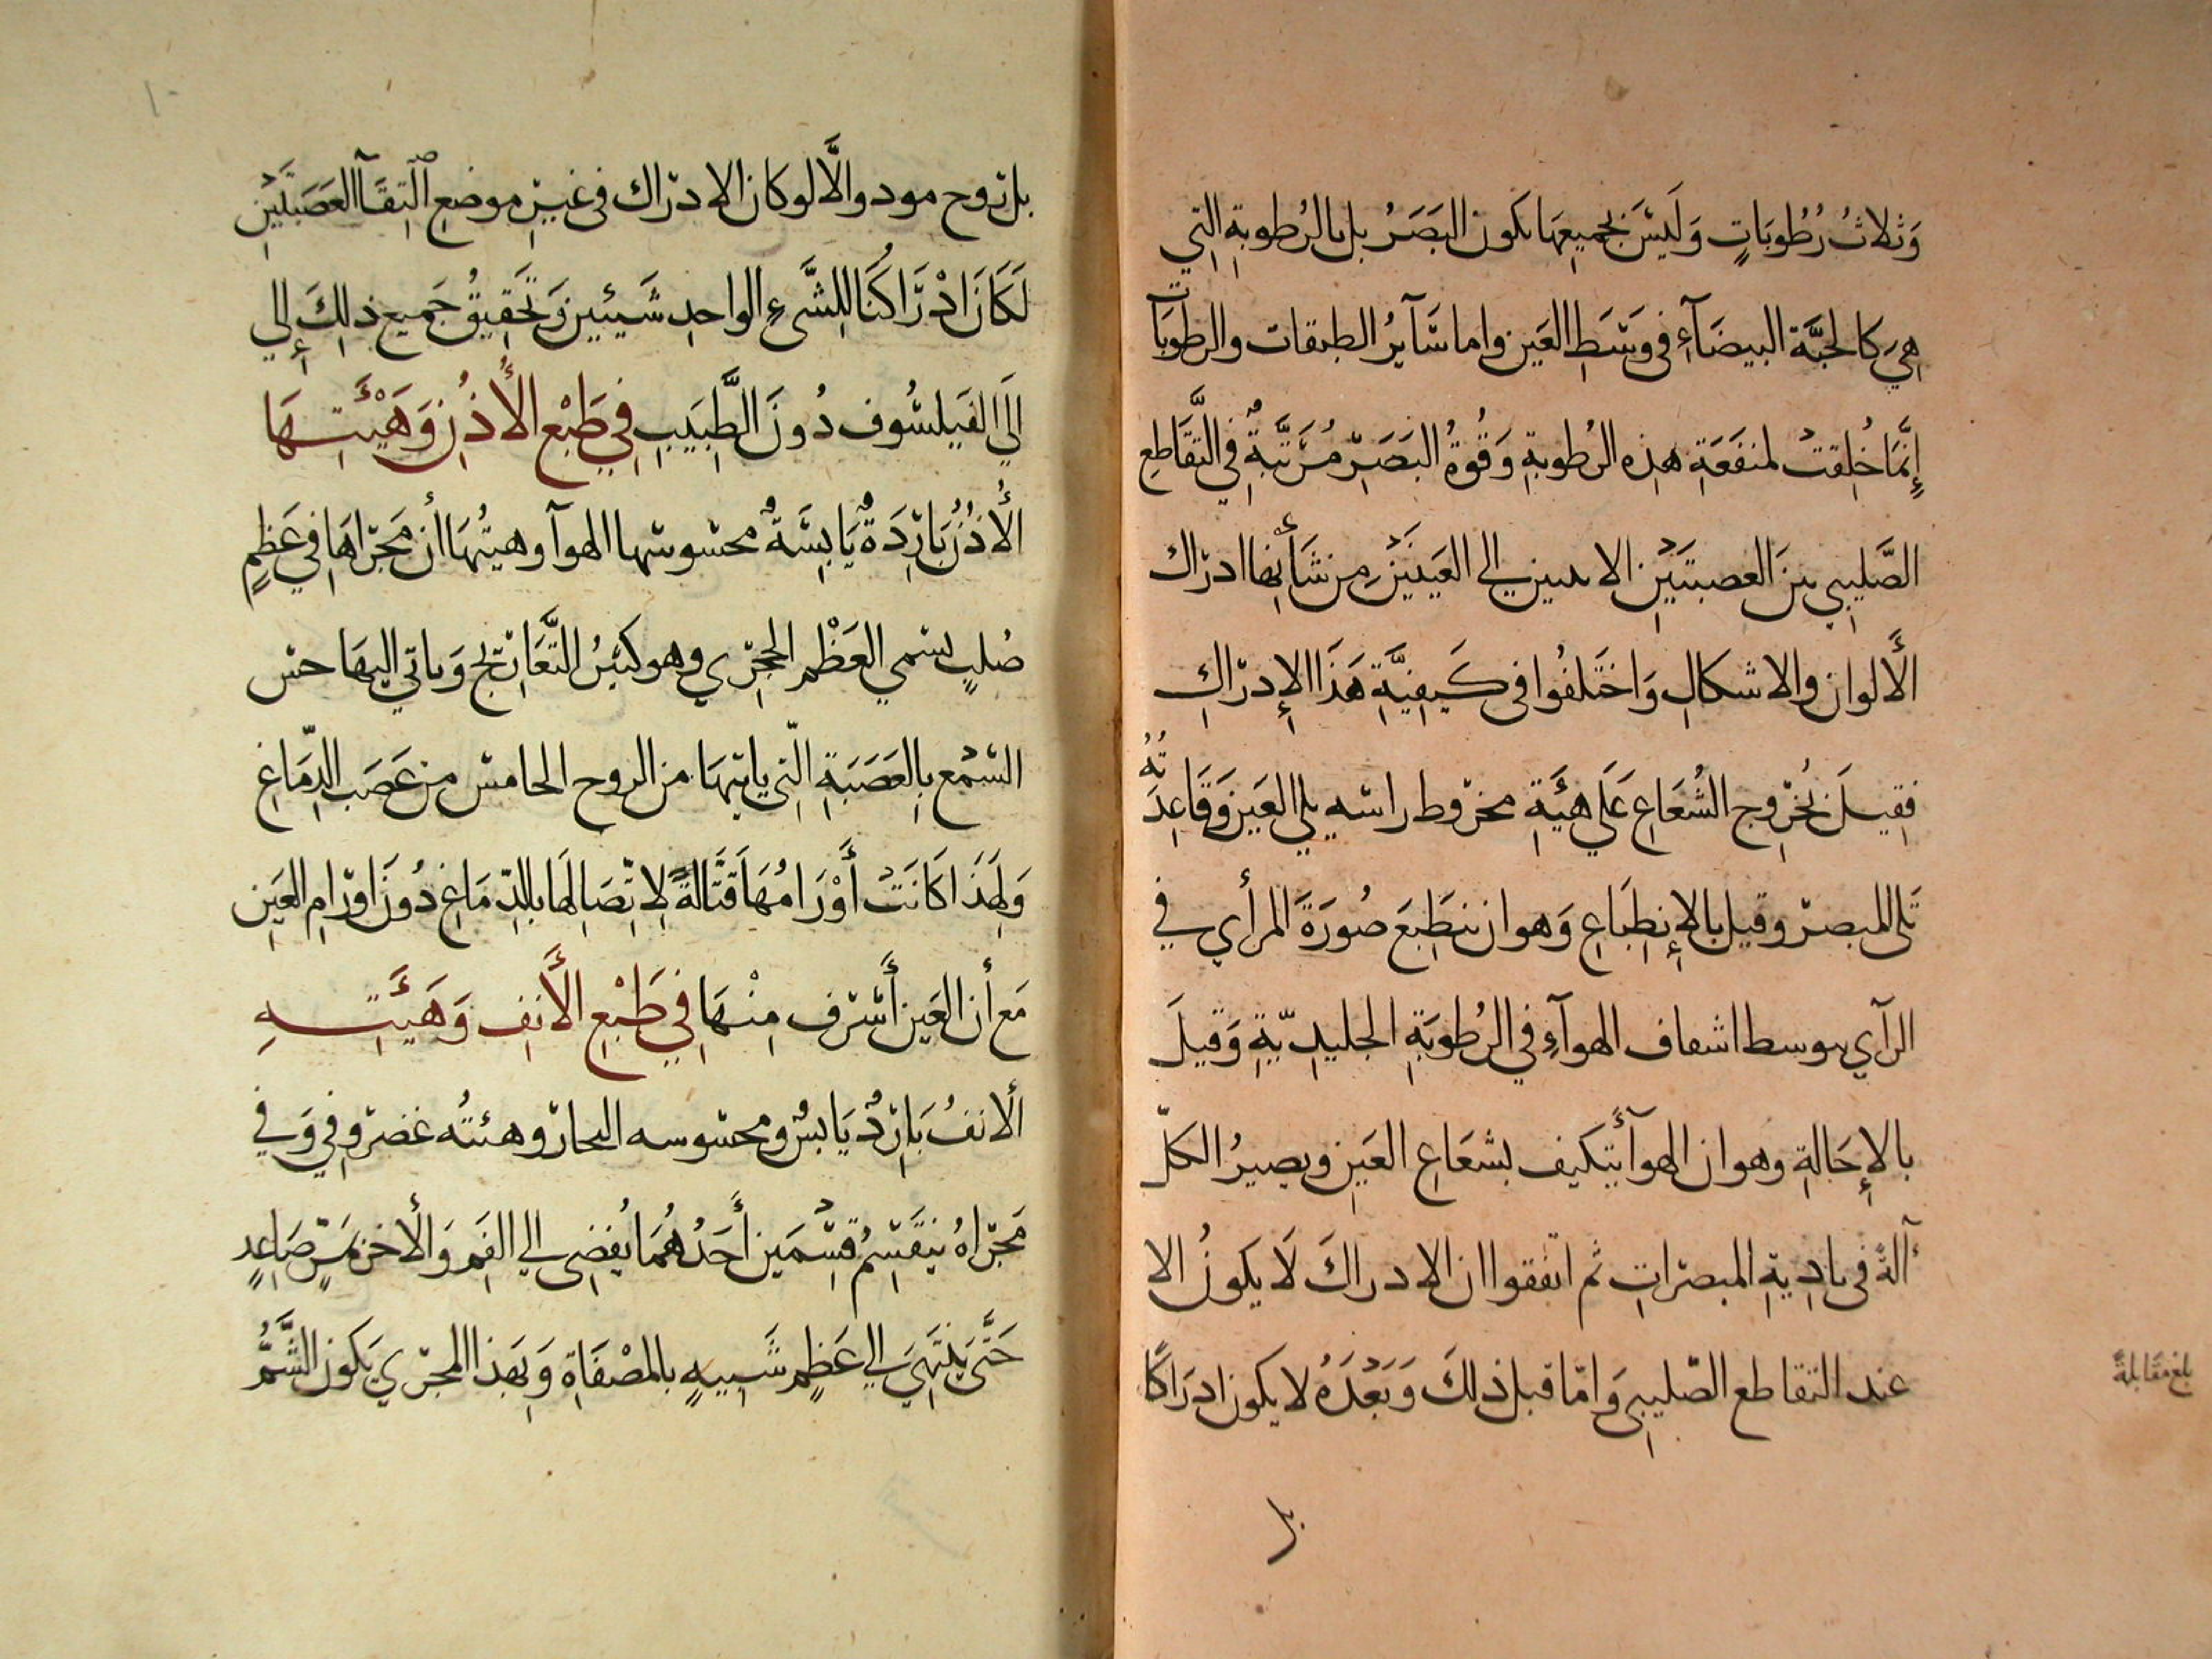 وَثلاثُ رُطُوبَاتٍ وَلَيْسَ بجميعِهَا يكون البَصَرُ بل بالرُطوبةِ التِي
هِيَ كالحبَّة البيضَآءِ في وَسَطِ العَين واما سَآيرُ الطبقات والرطوبَآت
إنَّمَا خُلِقتْ لمنفَعَةِ هذِه الرُطوبةِ وَقُوةُ البَصَرِ مُرَتَّبَةٌ في التقَّاطعِ
الصَّلِيبِي بينَ العصبتَيْنِ الاتيين إلي العَينَيْنِ مِن شَأنِها ادراك
الألوان والاشكالِ وَاختَلفُوا في كَيفِيَّةِ هَذَا الإدرَاكِ
فِقِيلَ بخُروج الشُعَاعِ عَلَي هيَّةِ مخروط راسه يلي العَين وَقَاعِدَتُهُ
تَلي المبصر وقيل بالإنطِبَاعِ وَهو ان ينطَبِعَ صُورَةَ المرأي في
الرآي بتوسط اشفاف الهوآءِ في الرُطُوبَةِ الجليدِيّةِ وَقِيلَ
بالإحَالةِ وهو ان الهوآ يتكيف بشعَاعِ العَينِ ويصيرُ الكلّ
آلةً في تادِيةِ المبصراتِ ثم اتفقوا ان الادراكَ لَا يكونُ الا
عند التقاطع الصّليبي وَامّا قبل ذلكَ وَبَعْدَهُ لا يكون ادرَاكًا
بل
بلغ مقابلة
١٠
بل تروح مودو والَّا لو كان الادراك في غيرِ موضعِ الْتِقَآ العَصَبتَيْنِ
لَكَانَ ادْرَاكُنَا لِلشَّيءِ الواحِدِ شَيئين وَتَحقِيقُ جَميع ذلِكَ إلي
إلَي الفَيلسُوف دُونَ الطَّبِيَبِ فِي طَبْعِ الأُذُنِ وَهَيْئَتِهَا
الأُذنُ بَارِدَةٌ يَابِسَةٌ محسوسها الهوآ وهيتُهَا أن مَجرَاهَا في عَظمٍ
صُلبٍ يسمي العَظْم الحجَري وهو كثيرُ التَّعَارِيج وَياتي اليهَا حس
السّمْع بِالعَصَبَةِ الّتِي ياتيهَا من الروح الخامس من عَصَب الدِّمَاغِ
وَلِهَذَا كَانَتْ أَوْرَامُهَا قَتَّالةً لِاتِّصَالِهَا بالدِّمَاغِ دُونَ اورَامِ العَينِ
مَع أن العَين أَشرف مِنْهَا فِي طَبْعِ الأَنفِ وَهَيئَتِهِ
الأنفُ بَارِدٌ يَابسٌ ومحسوسه البخار وهيئتُه غضروفي وَفي
مَجرَاهُ يَنقَسِمُ قِسْمَين أَحَدُهُمَا يُفضِي إلي الفَمِ وَالأخر يمر صَاعِدٍ
حَتَّي يَنتَهِيَ إلي عَظِم شَبِيهٍ بالمصْفَاةِ وَبِهَذا المجرَي يَكون الشَّمُّ